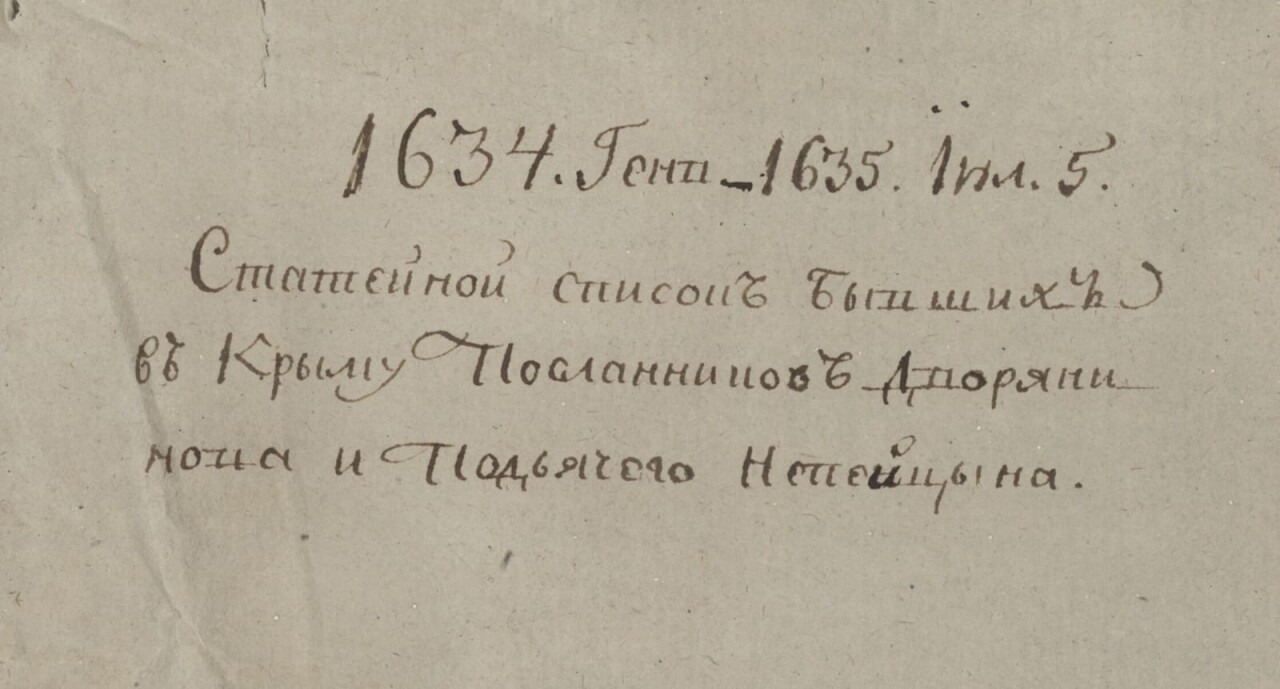 1634. Генв_1635. Іюл. 5.
Статейной список бывшихъ
въ Крыму Посланниковъ Дворяни
нова и Подьячего Непейцына.